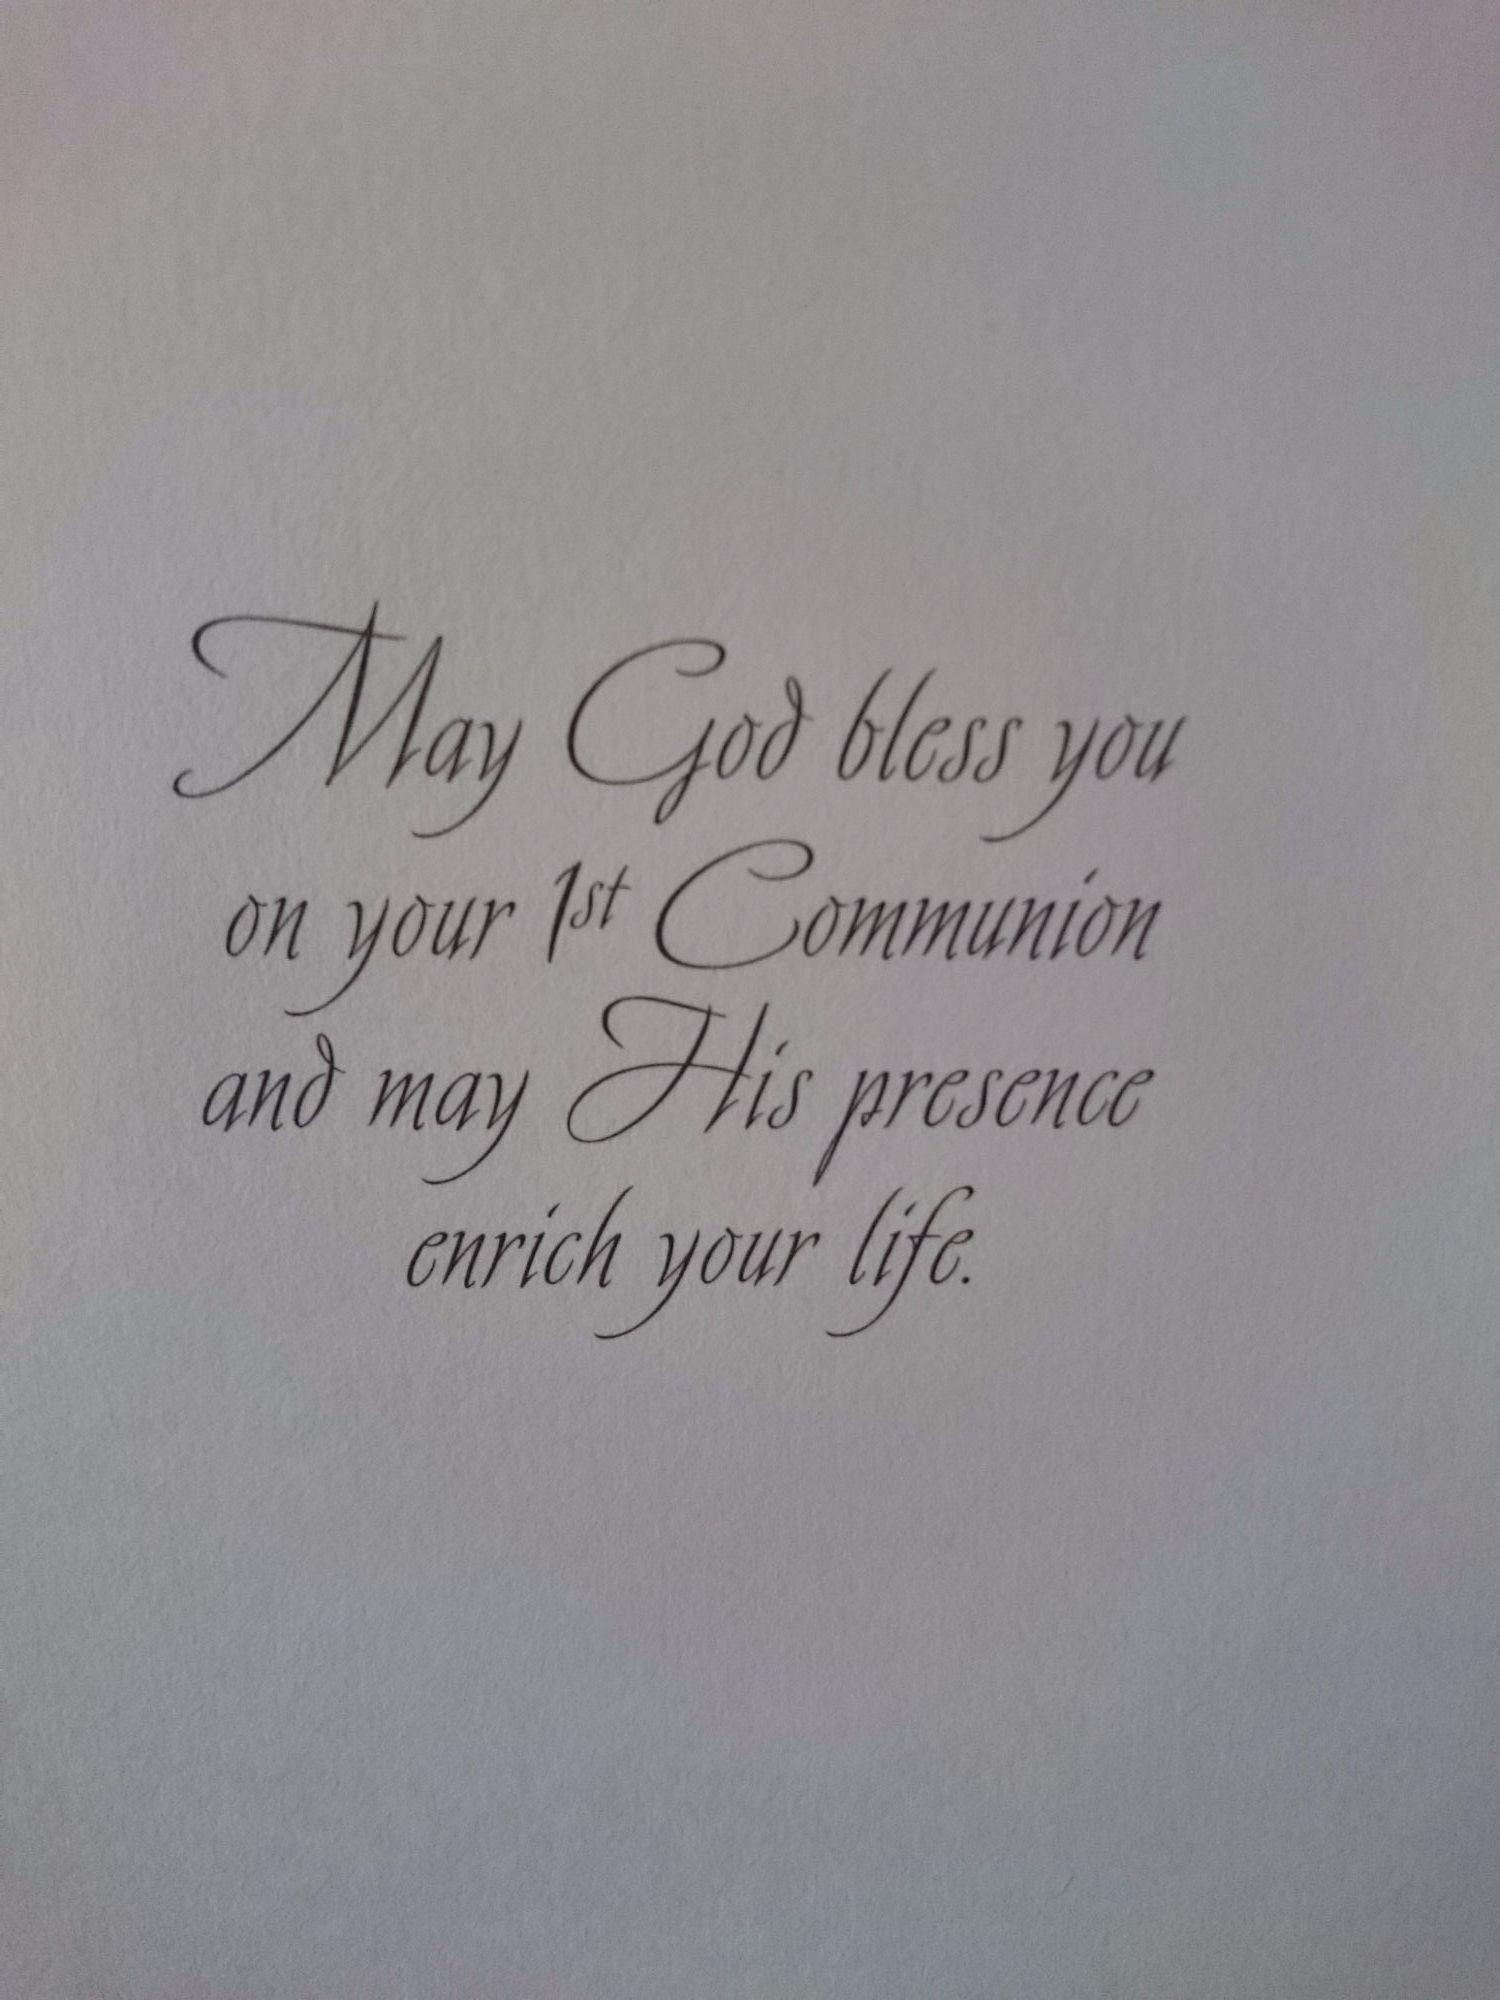 May God bless you
on your 1st Communion
and may His presence
enrich your life.